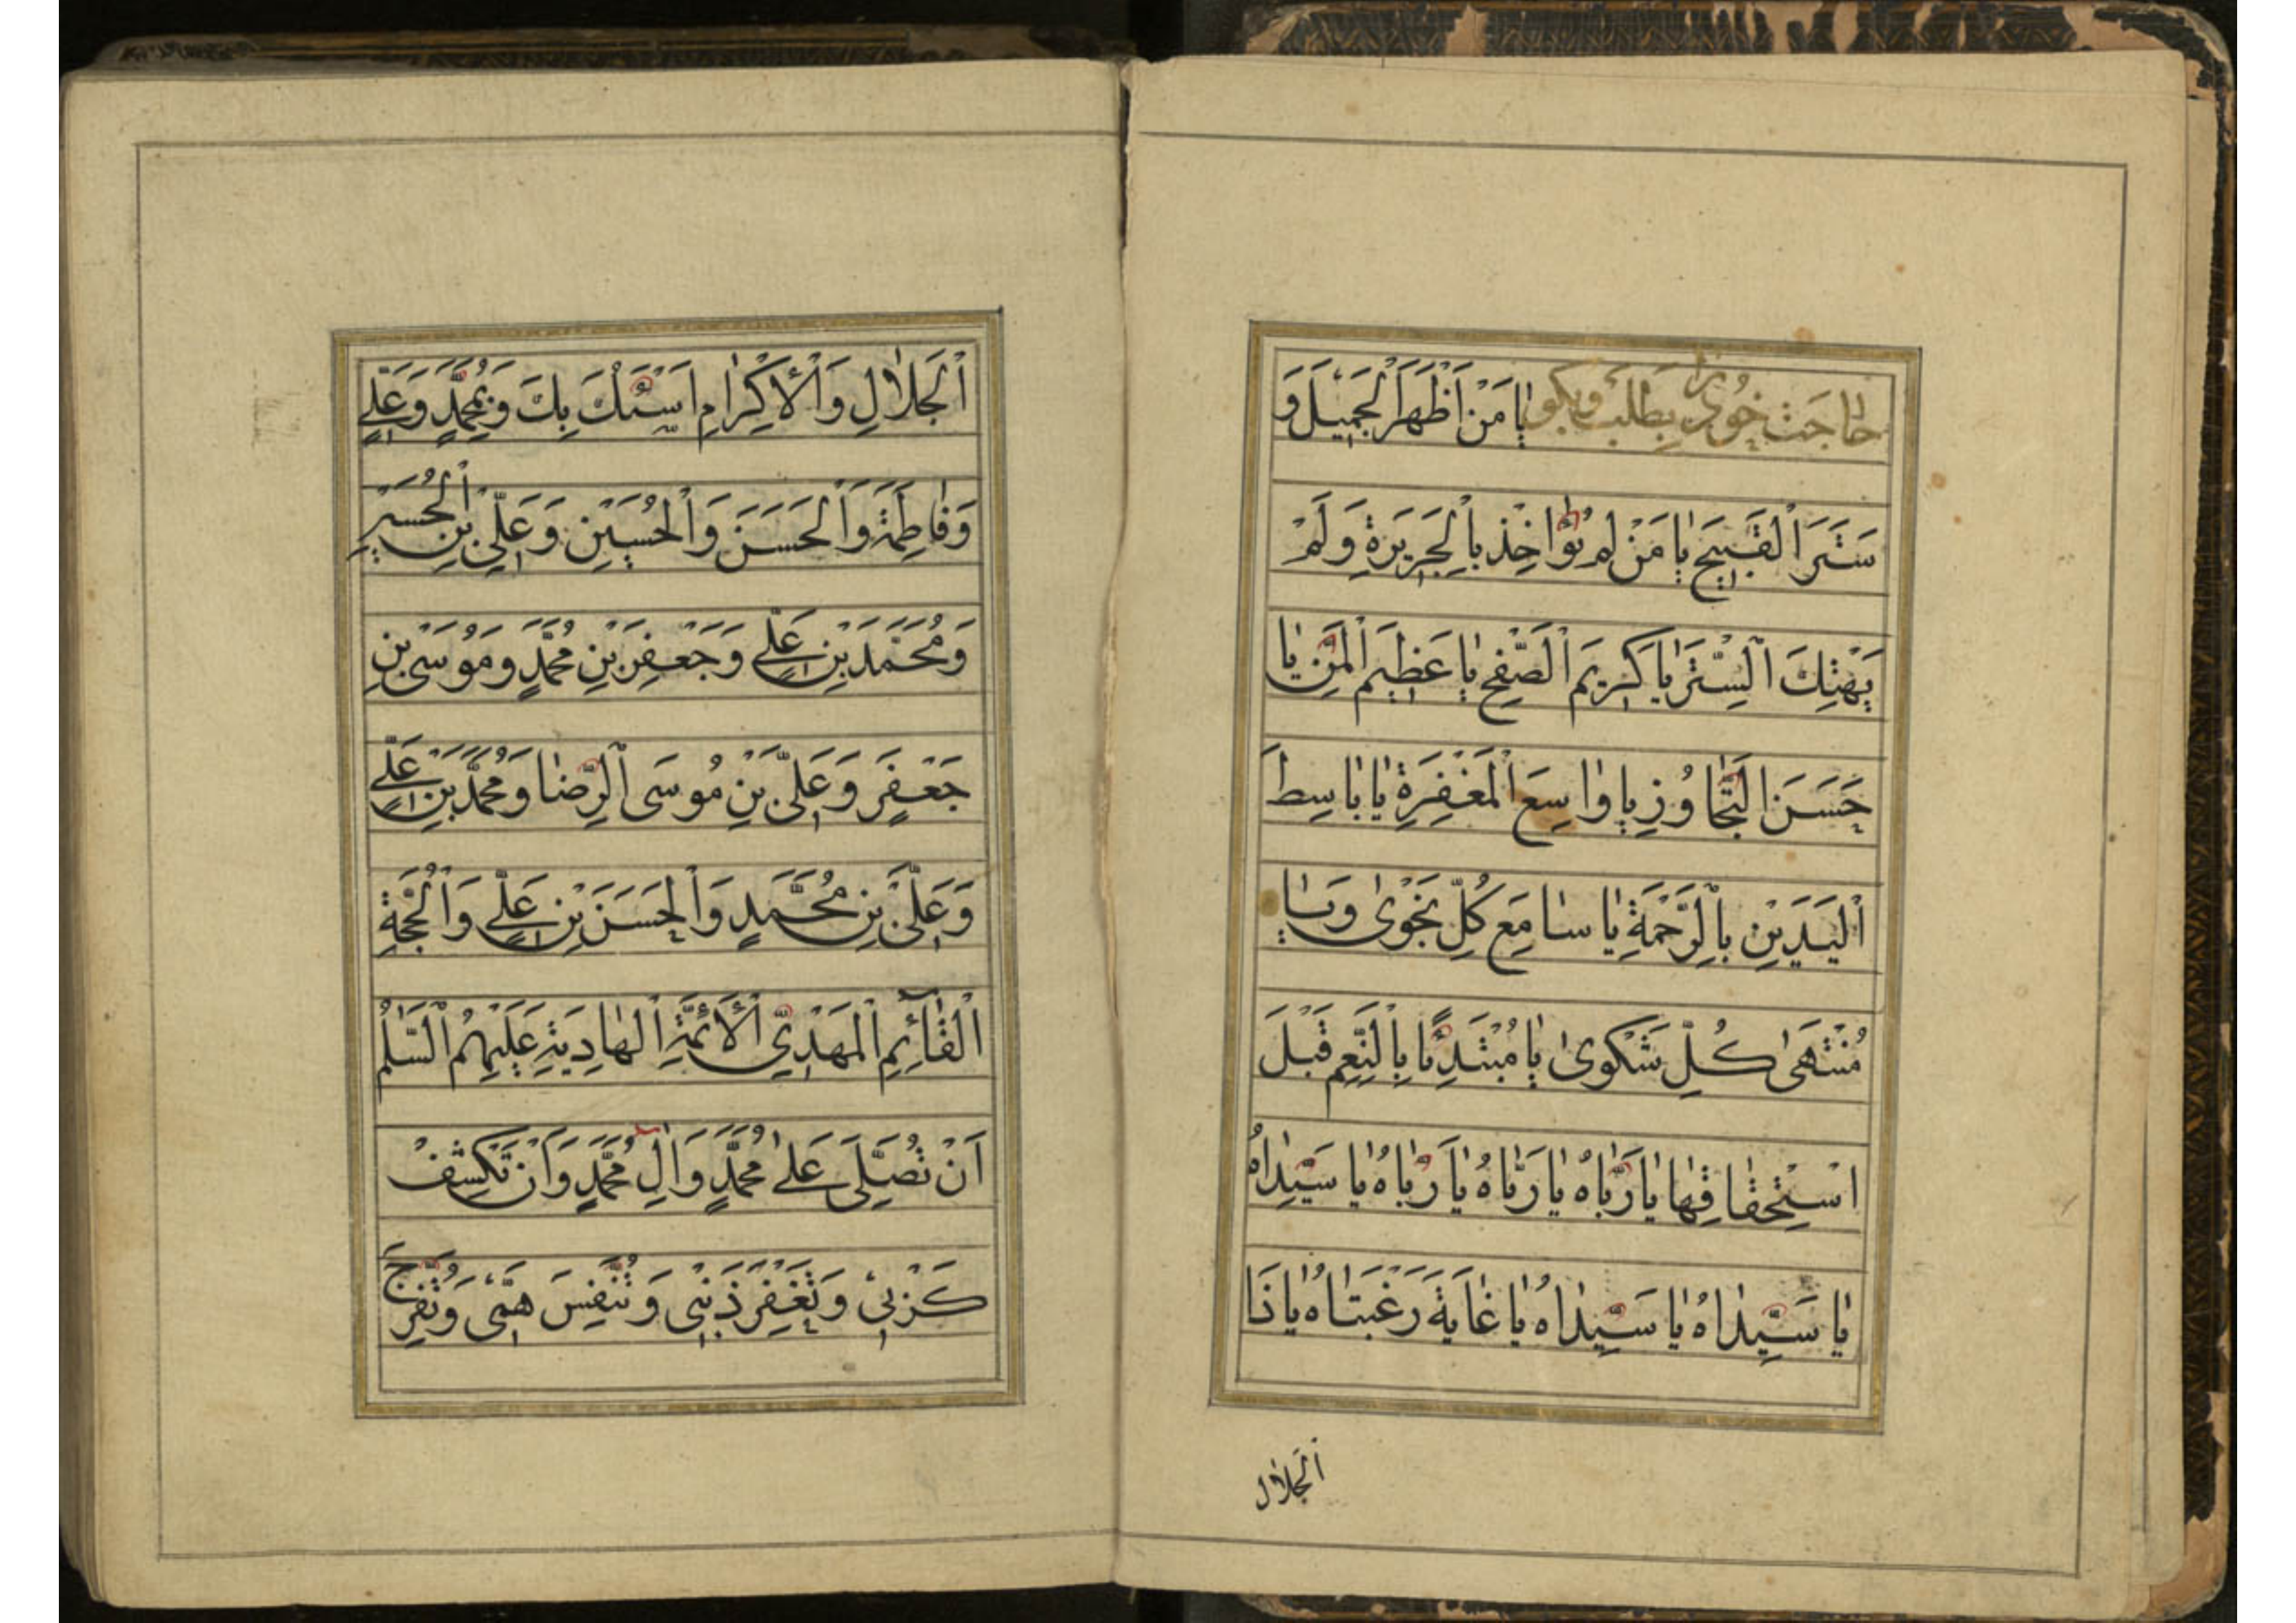 حاجت خود را بطلبد و بگوید یٰا مَنْ اَظْهَرَ الْجَمیٖلَ وَ
سَتَرَ الْقَبیٖحَ یٰا مَنْ لَمْ یُؤٰاخِذْ بِالْجَریٖرَةِ وَ لَمْ
یَهْتِكِ السِّتْرَ یٰا كَریٖمَ الصَّفْحِ یٰا عَظیٖمَ الْمَنِّ یٰا
حَسَنَ التَّجٰاوُزِ یٰا وٰاسِعَ الْمَغْفِرَةِ یٰا بٰاسِطَ
الْیَدَیْنِ بِالرَّحْمَةِ یٰا سٰامِعَ كُلِّ نَجْوٰی وَ یٰا
مُنْتَهیٰ كُلِّ شَكْویٰ یٰا مُبْتَدِئًا بِالنِّعَمِ قَبْلَ
اسْتِحْقٰاقِهٰا یٰا رَبّٰاهُ یٰا رَبّٰاهُ یٰا رَبّٰاهُ یٰا سَیِّدٰاهُ
یٰا سَیِّدٰاهُ یٰا سَیِّدٰاهُ یٰا غٰایَةَ رَغْبَتٰاهُ یٰا ذَا
الْجَلٰال
الْجَلٰالِ وَ الْاِكْرٰامِ اَسْئَلُكَ بِكَ وَ بِمُحَمَّدٍ وَ عَلِیٍّ
وَ فٰاطِمَةَ وَ الْحَسَنِ وَ الْحُسَیْنِ وَ عَلِیِّ بْنِ الْحُسَیْنِ
وَ مُحَمَّدِ بْنِ عَلِیٍّ وَ جَعْفَرِ بْنِ مُحَمَّدٍ وَ مُوسَی بْنِ
جَعْفَرٍ وَ عَلِیِّ بْنِ مُوسَی الرِّضٰا وَ مُحَمَّدِ بْنِ عَلِیٍّ
وَ عَلِیِّ بْنِ مُحَمَّدٍ وَ الْحَسَنِ بْنِ عَلِیٍّ وَ الْحُجَّةِ
الْقٰآئِمِ الْمَهْدِیِّ الْاَئِمَّةِ الْهٰادِیَةِ عَلَیْهِمُ السَّلٰمُ
اَنْ تُصَلِّیَ عَلیٰ مُحَمَّدٍ وَ اٰلِ مُحَمَّدٍ وَ اَنْ تَكْشِفَ
كَرْبیٖ وَ تَغْفِرَ ذَنْبیٖ وَ تُنَفِّسَ هَمّیٖ وَ تُفَرِّجَ